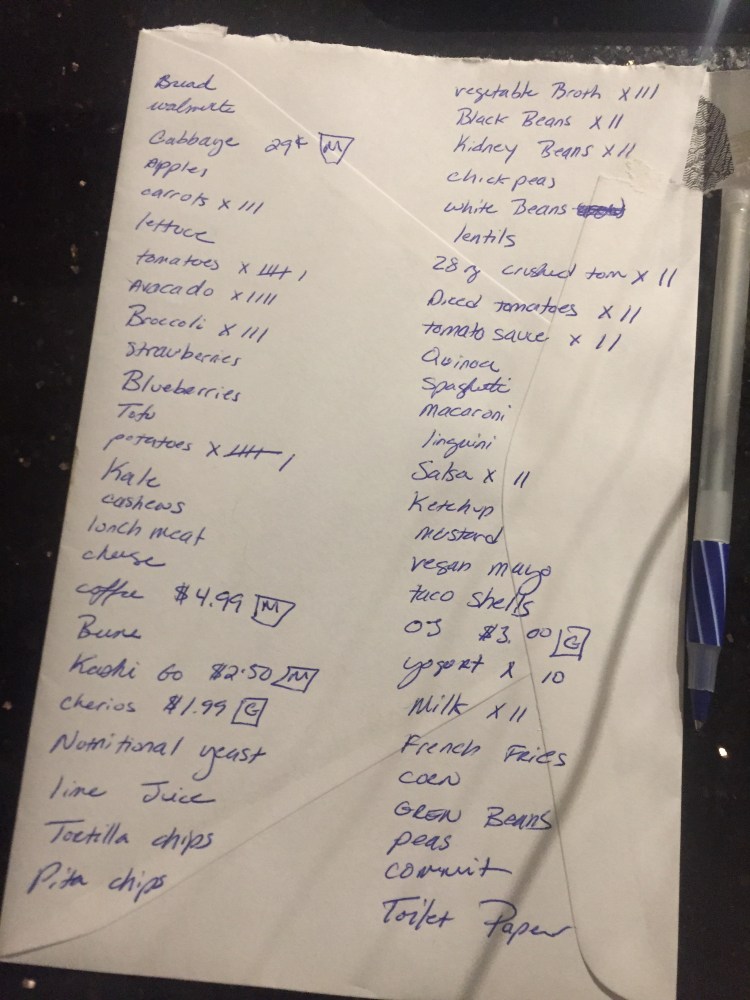 Bread
walnuts
Cabbage 29¢ M
Apples
carrots x III
lettuce
tomatoes x IIII I
Avacado x IIII
Broccoli x III
Strawberries
Blueberries
Tofu
potatoes x IIII I
Kale
cashews
lunch meat
cheese
coffee $4.99 M
Kashi Go $2.50 M
cherios $1.99 G
Nutritional yeast
lime Juice
Tortilla chips
Pita chips
vegetable Broth x III
Black Beans x II
Kidney Beans x II
chick peas
white Beans
lentils
28 oz crushed tom x II
Diced tomatoes x II
tomato sauce x II
Quinoa
Spaghetti
macaroni
linguini
Salsa x II
Ketchup
mustard
vegan mayo
taco shells
OJ $3.00 G
yogort x 10
Milk x II
French Fries
corn
GREEN Beans
peas
commit
Toilet Paper